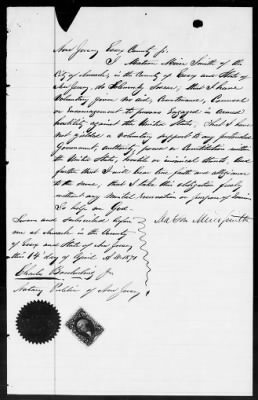 New Jersey Essex County ss.
I Marton Meier Smith of the
City of Newark, in the County of Essex and State of
New Jersey, do Solemnly Swear, that I have
Voluntarily given no aid, Countenance, Counsel
or encouragement to persons Engaged in armed
hostility against the United States, That I have
not yielded a voluntary support to any pretended
Government, authority, power or Constitution within
the United States, hostile or inimical thereto, And
further that I will bear true faith and allegiance
to the same, that I take this obligation freely
without any mental reservation or purpose of evasion
So help me God.
Sworn and Subscribed before
me at Newark in the County
of Essex and State of New Jersey
this 14 day of April A.D. 1871
Notary Public of New Jersey